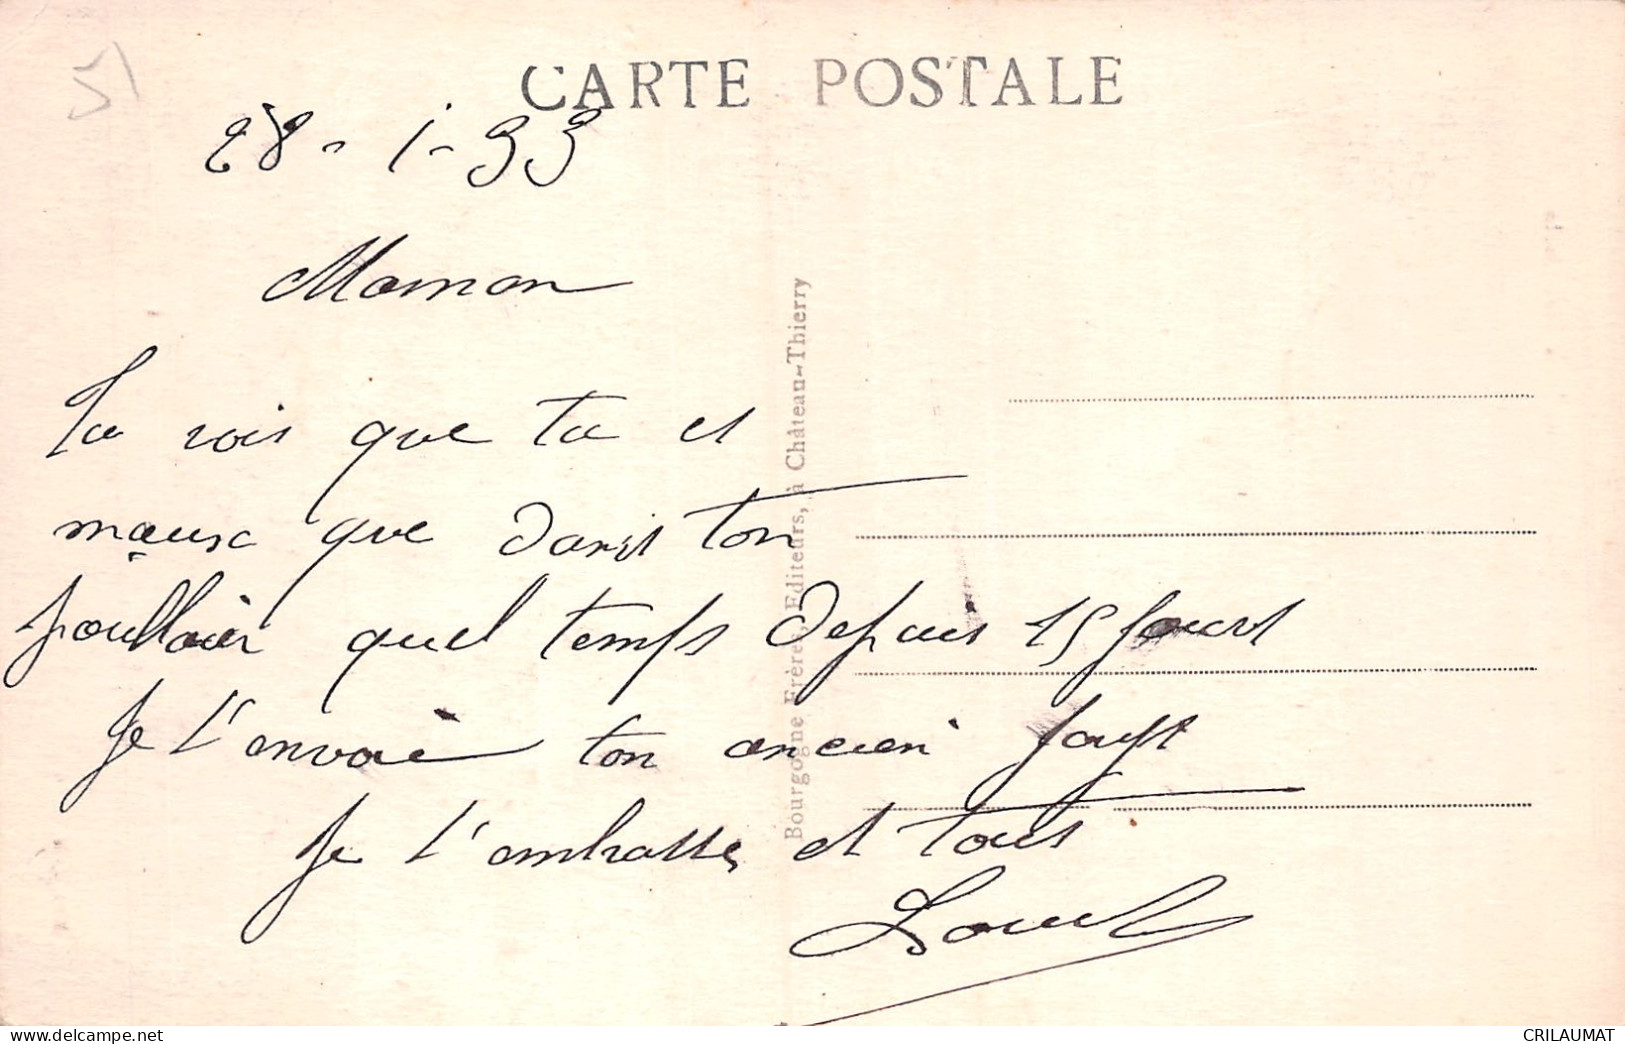 51
CARTE POSTALE
28 - 1 - 33
Maman
Tu vois que tu es
mieux que dans ton
quel temps depuis 15 jours
Je t'envoie ton ancien
Je t'embrasse et tous
Louis
Bourgogne Frères, Editeurs, à Château-Thierry
www.delcampe.net
CRILAUMAT